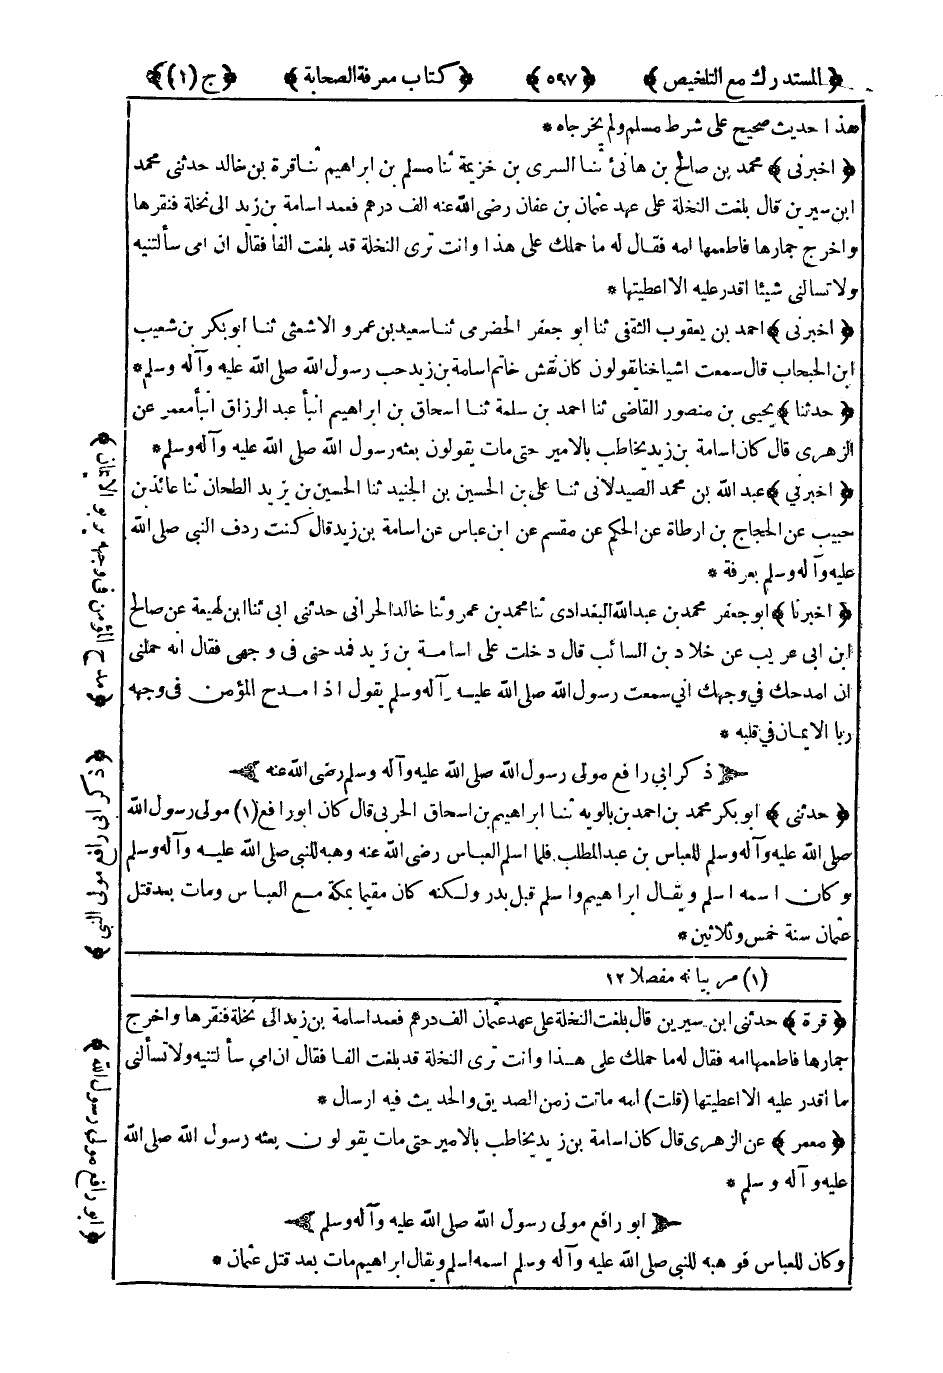 ﴿ المستدرك مع التلخيص ﴾ ﴿ ٥٩٧ ﴾ ﴿ كتاب معرفة الصحابة ﴾ ﴿ ج (١) ﴾
هذا حديث صحيح على شرط مسلم ولم يخرجاه *
﴿ اخبرنى ﴾ محمد بن صالح بن هانئ ثنا السرى بن خزيمة ثنا مسلم بن ابراهيم ثنا قرة بن خالد حدثنى محمد
ابن سيرين قال بلغت النخلة على عهد عثمان بن عفان رضى الله عنه الف درهم فعمد اسامة بن زيد الى نخلة فنقرها
واخرج جمارها فاطعمها امه فقال له ما حملك على هذا وانت ترى النخلة قد بلغت الفا فقال ان امى سألتنيه
ولا تسالنى شيئا اقدر عليه الا اعطيتها *
﴿ اخبرنى ﴾ احمد بن يعقوب الثقفى ثنا ابو جعفر الحضرمى ثنا سعيد بن عمرو الاشعثى ثنا ابو بكر بن شعيب
ابن الحبحاب قال سمعت اشياخنا يقولون كان نقش خاتم اسامة بن زيد حب رسول الله صلى الله عليه وآله وسلم *
﴿ حدثنا ﴾ يحيى بن منصور القاضى ثنا احمد بن سلمة ثنا اسحاق بن ابراهيم انبأ عبد الرزاق انبأ معمر عن
الزهرى قال كان اسامة بن زيد يخاطب بالامير حتى مات يقولون بعثه رسول الله صلى الله عليه وآله وسلم *
﴿ اخبرني ﴾ عبد الله بن محمد الصيدلانى ثنا على بن الحسين بن الجنيد ثنا الحسين بن يزيد الطحان ثنا عائذ بن
حبيب عن الحجاج بن ارطاة عن الحكم عن مقسم عن ابن عباس عن اسامة بن زيد قال كنت ردف النبى صلى الله
عليه وآله وسلم بعرفة *
﴿ اخبرنا ﴾ ابو جعفر محمد بن عبد الله البغدادى ثنا محمد بن عمرو ثنا خالد الحرانى حدثنى ابى ثنا ابن لهيعة عن صالح
ابن ابى عريب عن خلاد بن السائب قال دخلت على اسامة بن زيد فمدحنى فى وجهى فقال انه حملنى
ان امدحك في وجهك اني سمعت رسول الله صلى الله عليه وآله وسلم يقول اذا مدح المؤمن فى وجهه
ربا الايمان في قلبه *
ذكر ابي رافع مولى رسول الله صلى الله عليه وآله وسلم رضى الله عنه
﴿ حدثنى ﴾ ابو بكر محمد بن احمد بن بالويه ثنا ابراهيم بن اسحاق الحربى قال كان ابو رافع (١) مولى رسول الله
صلى الله عليه وآله وسلم للعباس بن عبد المطلب فلما اسلم العباس رضى الله عنه وهبه للنبى صلى الله عليه وآله وسلم
وكان اسمه اسلم ويقال ابراهيم واسلم قبل بدر ولكنه كان مقيما بمكة مع العباس ومات بعد قتل
عثمان سنة خمس وثلاثين *
(١) مر بيانه مفصلا ١٢
﴿ قرة ﴾ حدثنى ابن سيرين قال بلغت النخلة على عهد عثمان الف درهم فعمد اسامة بن زيد الى نخلة فنقرها واخرج
جمارها فاطعمها امه فقال له ما حملك على هذا وانت ترى النخلة قد بلغت الفا فقال ان امي سألتنيه ولا تسألنى
ما اقدر عليه الا اعطيتها (قلت) امه ماتت زمن الصديق والحديث فيه ارسال *
﴿ معمر ﴾ عن الزهرى قال كان اسامة بن زيد يخاطب بالامير حتى مات يقولون بعثه رسول الله صلى الله
عليه وآله وسلم *
ابو رافع مولى رسول الله صلى الله عليه وآله وسلم
وكان للعباس فوهبه للنبى صلى الله عليه وآله وسلم اسمه اسلم ويقال ابراهيم مات بعد قتل عثمان *
﴿ مدح المؤمن فى وجهه يربو الايمان ﴾
﴿ ذكر ابى رافع مولى النبى ﴾
﴿ ابو رافع مولى رسول الله ﴾